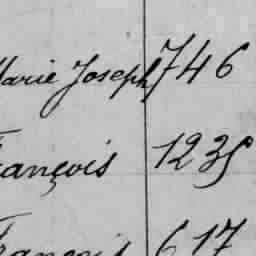 Marie Joseph 746
François 1235
François 617